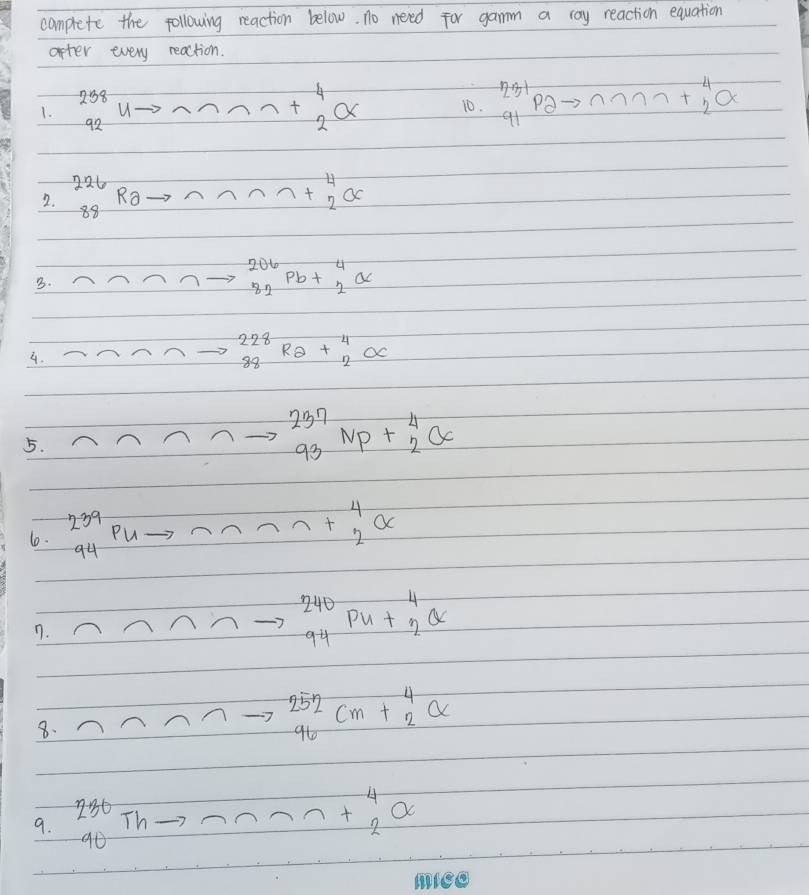 complete the following reaction below. No need for gamm a ray reaction equation
after every reaction.
1. ²³⁸₉₂U → ⌒ ⌒ ⌒ ⌒ + ⁴₂α
10. ²³¹₉₁Pa → ⌒ ⌒ ⌒ ⌒ + ⁴₂α
2. ²²⁶₈₈Ra → ⌒ ⌒ ⌒ ⌒ + ⁴₂α
3. ⌒ ⌒ ⌒ ⌒ → ²⁰⁶₈₂Pb + ⁴₂α
4. ⌒ ⌒ ⌒ ⌒ → ²²⁸₈₈Ra + ⁴₂α
5. ⌒ ⌒ ⌒ ⌒ → ²³⁷₉₃Np + ⁴₂α
6. ²³⁹₉₄Pu → ⌒ ⌒ ⌒ ⌒ + ⁴₂α
7. ⌒ ⌒ ⌒ ⌒ → ²⁴⁰₉₄Pu + ⁴₂α
8. ⌒ ⌒ ⌒ ⌒ → ²⁵²₉₆Cm + ⁴₂α
9. ²³⁰₉₀Th → ⌒ ⌒ ⌒ ⌒ + ⁴₂α
mico